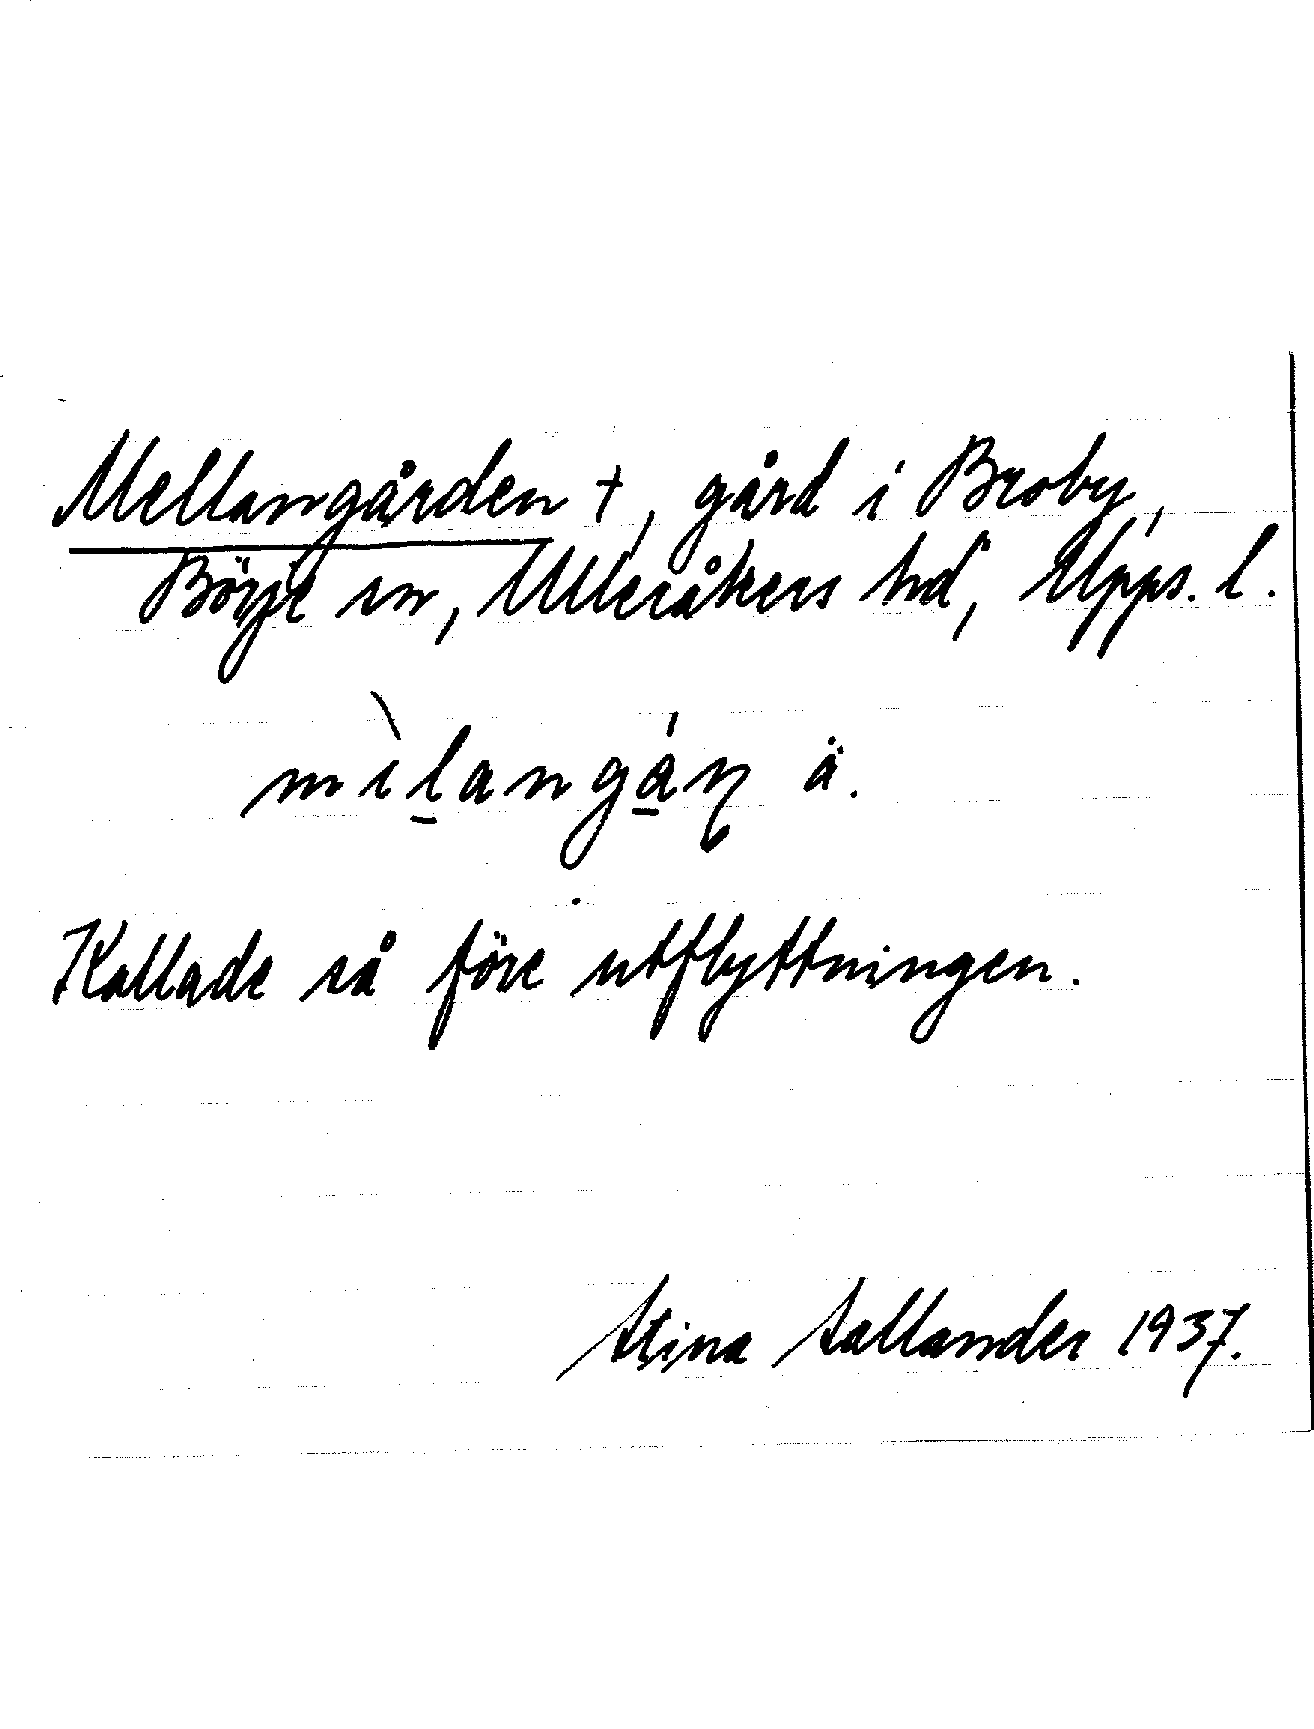 Mellangården +, gård i Broby,
Börje sn, Ulleråkers hd, Upps. l.
mìlangán ä.
Kallade så före utflyttningen.
Stina Sallander 1937.